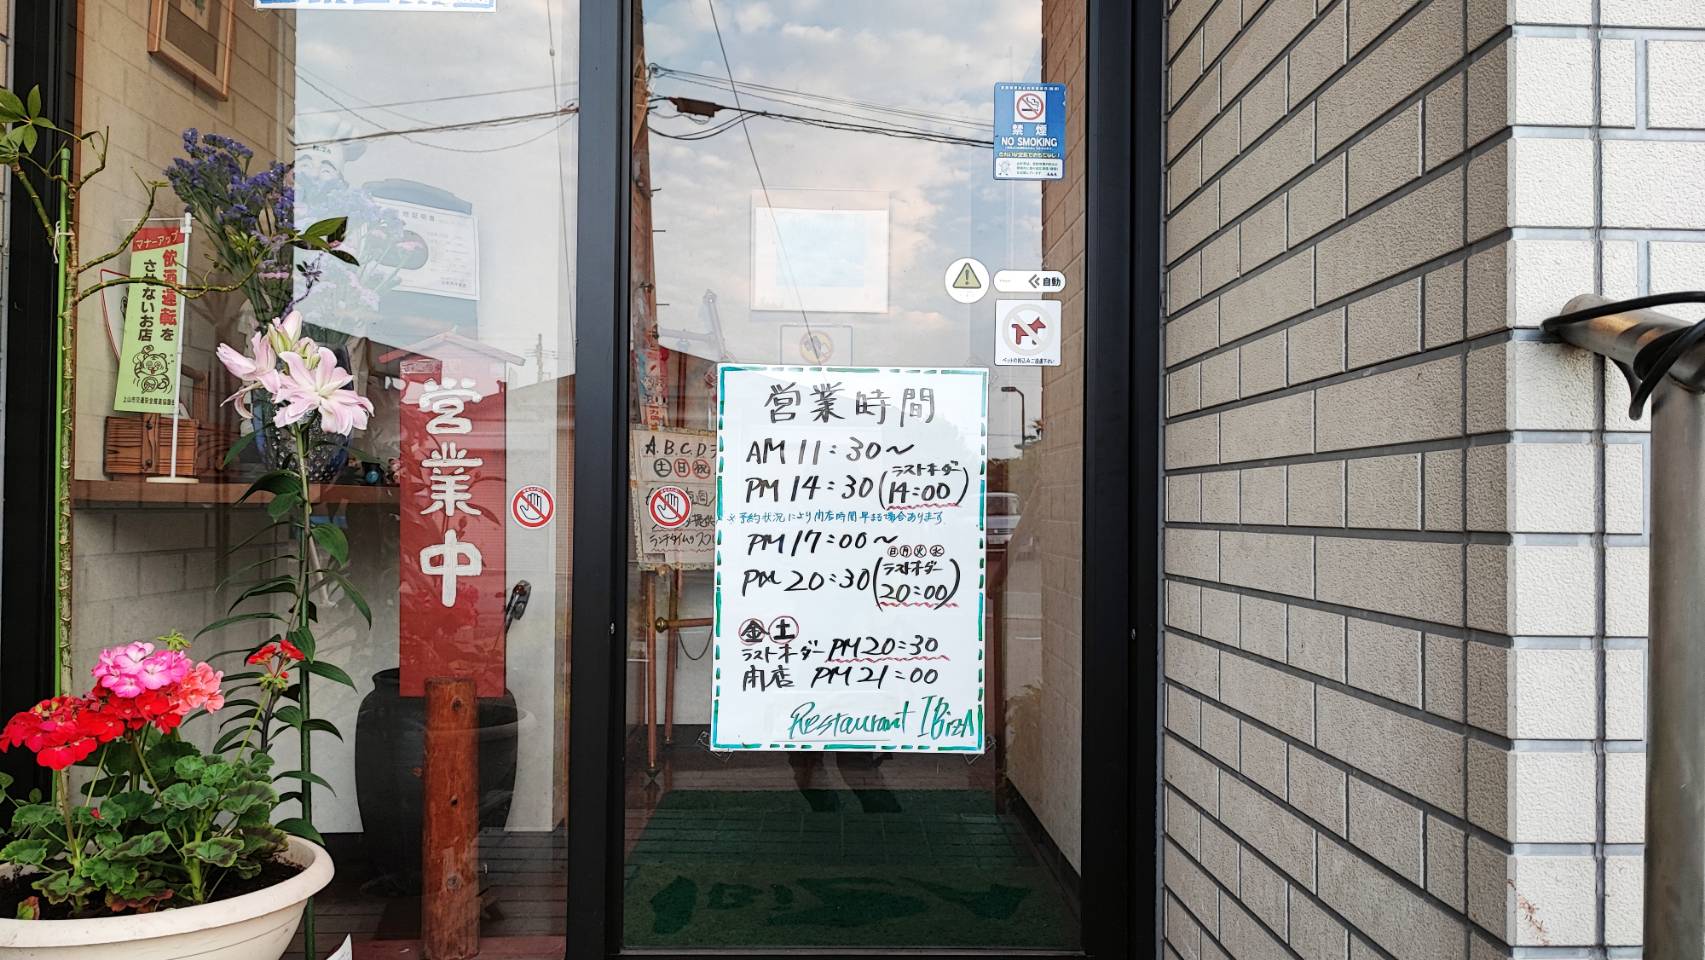 マナーアップ
飲酒運転を
させないお店
営業中
禁煙
NO SMOKING
自動
ペットのお込みご遠慮下さい
A.B.C.D
土日祝
ランチタイム
営業時間
AM 11:30～
PM 14:30(ラストオーダー 14:00)
※予約状況により閉店時間早まる場合あります
PM 17:00～
日月火水
PM 20:30(ラストオーダー 20:00)
金土
ラストオーダー PM 20:30
閉店 PM 21:00
Restaurant IBizA
IBIZA